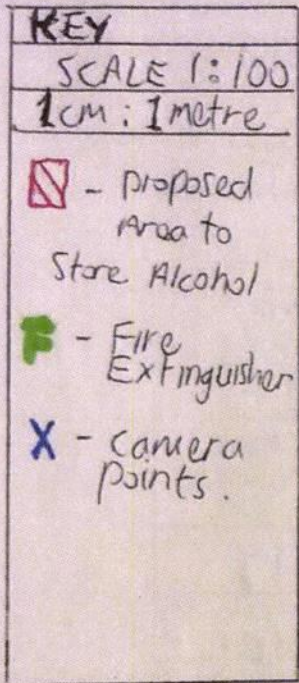 KEY
SCALE 1:100
1cm : 1metre
- proposed
Area to
Store Alcohol
F - Fire
Extinguisher
X - camera
points.